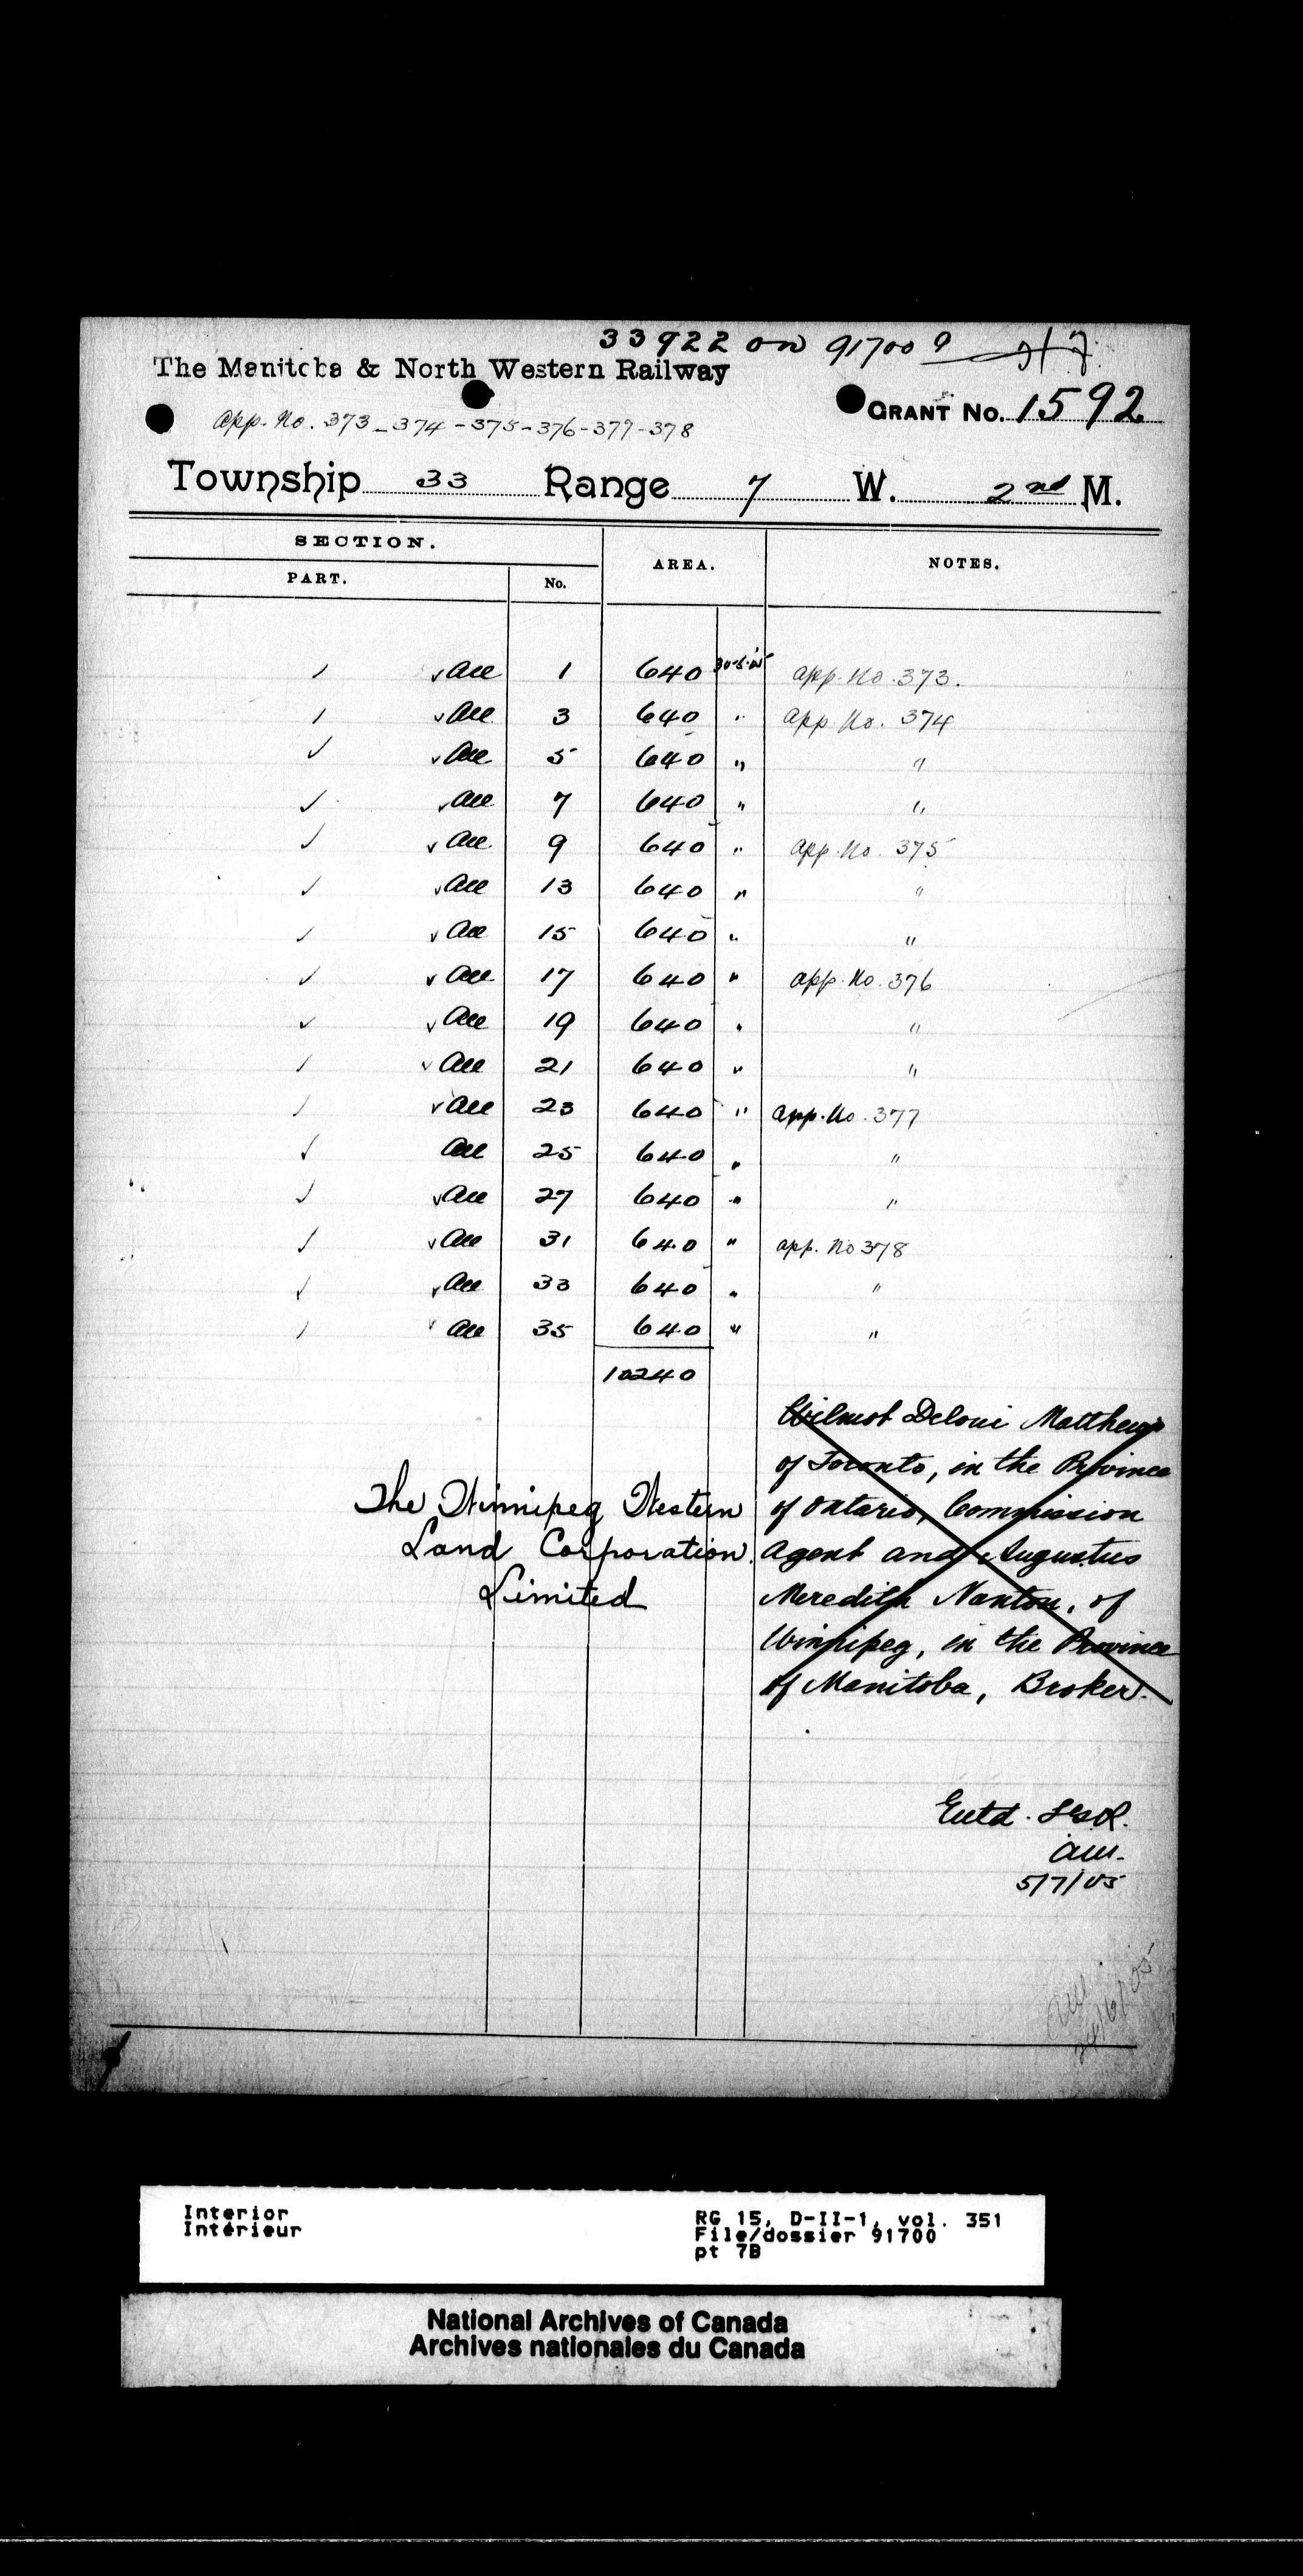 33922 on 91700
The Manitoba & North Western Railway
GRANT No. 1592
App. No. 373-374-375-376-377-378
Township 33 Range 7 W. 2nd M.
SECTION. AREA. NOTES.
PART. No.
All 1 640 30-5-05 App. No. 373.
All 3 640 " App No. 374
All 5 640 " "
All 7 640 " "
All 9 640 " App. No. 375
All 13 640 " "
All 15 640 " "
All 17 640 " App. No. 376
All 19 640 " "
All 21 640 " "
All 23 640 " App. No. 377
All 25 640 " "
All 27 640 " "
All 31 640 " App. No 378
All 33 640 " "
All 35 640 " "
10240
Wilmot Deloui Matthews
of Toronto, in the Province
of Ontario, Commission
Agent and Augustus
Meredith Nanton, of
Winnipeg, in the Province
of Manitoba, Broker.
The Winnipeg Western
Land Corporation
Limited
Entd.
5/7/05
24/6/05
Interior
Intérieur
RG 15, D-II-1, vol. 351
File/dossier 91700
pt 7B
National Archives of Canada
Archives nationales du Canada